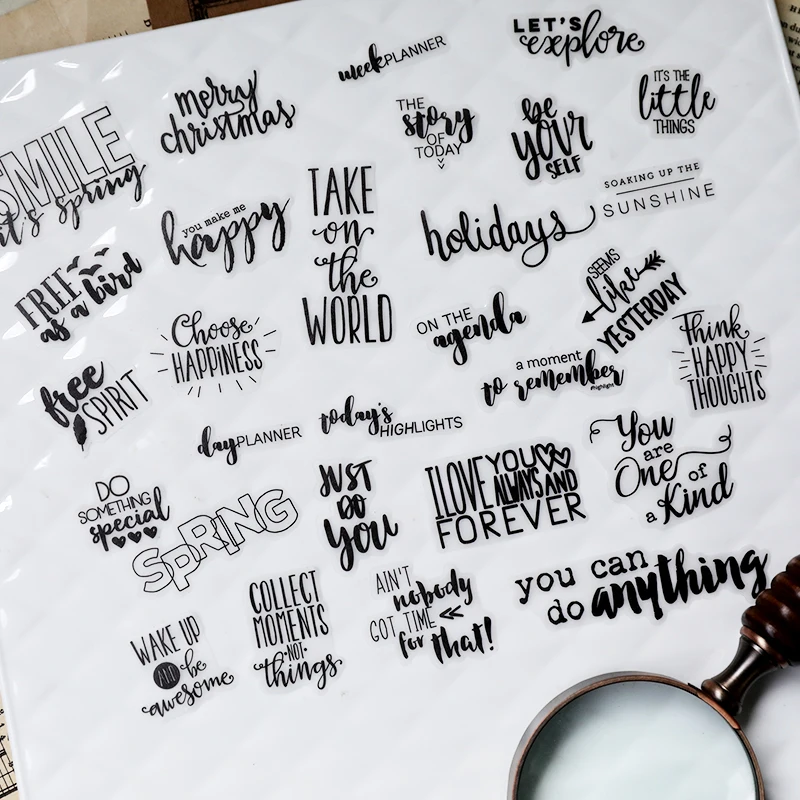 LET'S
explore
weekPLANNER
merry
christmas
IT'S THE
little
THINGS
THE
story
OF
TODAY
be
YOUR
SELF
SMILE
it's spring
you make me
happy
TAKE
on
the
WORLD
SOAKING UP THE
SUNSHINE
holidays
FREE
as a bird
SEEMS
like
YESTERDAY
Choose
HAPPINESS
ON THE
agenda
Think
HAPPY
THOUGHTS
a moment
to remember
free
SPIRIT
dayPLANNER
today's
HIGHLIGHTS
You
are
One of
a Kind
I LOVE YOU
ALWAYS AND
FOREVER
JUST
DO
YOU
DO
SOMETHING
special
SPRING
you can
do anything
AIN'T
nobody
GOT TIME
for that!
COLLECT
MOMENTS
·NOT·
things
WAKE UP
AND be
awesome